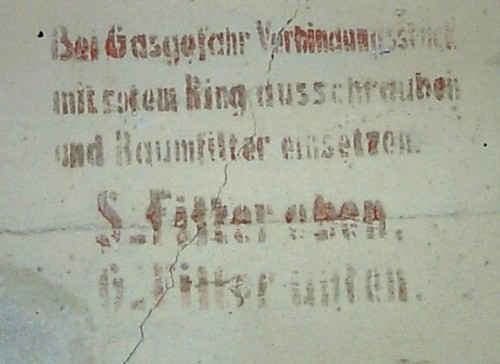 Bei Gasgefahr Verbindungsstück
mit rotem Ring ausschrauben
und Raumfilter einsetzen.
S-Filter oben.
G-Filter unten.